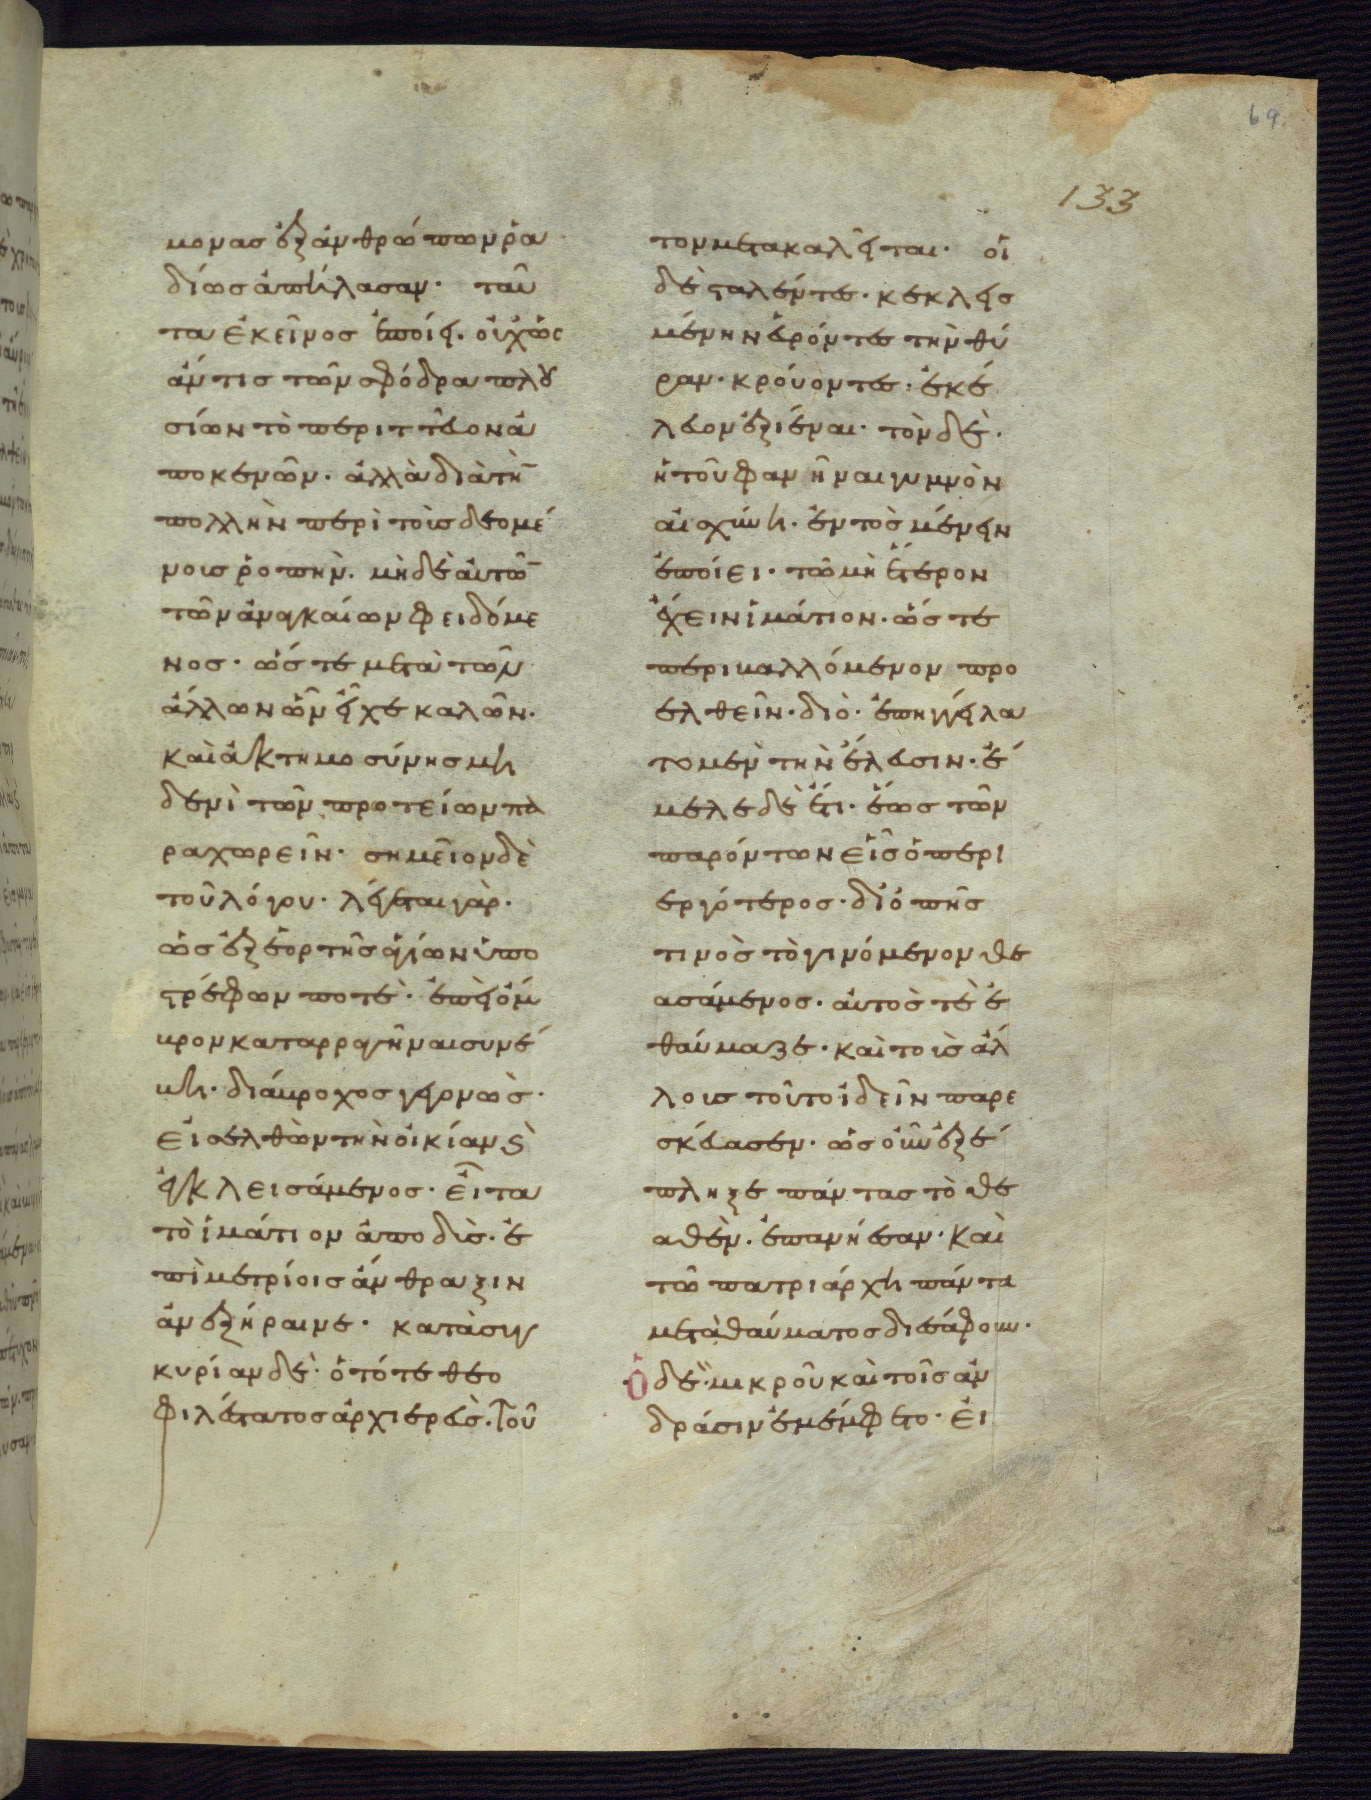 69.
133
μονας ἐξ ἀνθρώπων ῥα
δίως ἀπήλασαν. ταῦ
τα ἐκεῖνος ἐποίει. οὐχ ὡς
ἄν τις τῶν σφόδρα πλου
σίων τὸ περιττεῦον ἀ
ποκενῶν. ἀλλὰ διὰ τὴν
πολλὴν περὶ τοὺς δεομέ
νους ῥοπὴν. μὴ δὲ αὐτῶν
τῶν ἀναγκαίων φειδόμε
νος. ὥστε μετὰ τῶν
ἄλλων ὧν εἶχε καλῶν.
καὶ ἀκτημοσύνης μη
δενὶ τῶν πρωτείων πα
ραχωρεῖν. σημεῖον δὲ
τοῦ λόγου. λέγεται γὰρ.
ὡς ἐξ ἑορτῆς ἁγίων ὑπο
στρέφων ποτὲ. ἐπεὶ ὄμ
βρον καταρραγῆναι συνέ
βη. διάβροχος γεγονὼς.
εἰσελθὼν τὴν οἰκίαν καὶ
ἐγκλεισάμενος. εἶτα
τὸ ἱμάτιον ἀποδὺς. ἐ
πὶ μετρίοις ἄνθραξιν
ἀνεξήραινε. κατὰ συγ
κυρίαν δὲ. ὁ τότε θεο
φιλέστατος ἀρχιερεὺς. τοῦ
τον μετακαλεῖται. οἱ
δὲ σταλέντες. κεκλεισ
μένην εὑρόντες τὴν θύ
ραν. κρούοντες. ἐκέ
λευον ἐξιέναι. τὸν δὲ.
ἡ τοῦ φανῆναι γυμνὸν
αἰσχύνη. ἐντὸς μένειν
ἐποίει. τῶ μὴ ἕτερον
ἔχειν ἱμάτιον. ὥστε
περιβαλλόμενον προ
ελθεῖν. διὸ. ἐπηγγείλα
το μὲν τὴν ἔλευσιν. ἔ
μελε δὲ ἔτι. ἕως τῶν
παρόντων εἷς ὁ περι
εργότερος. δι' ὀπῆς
τινὸς τὸ γινόμενον θε
ασάμενος. αὐτός τε ἐ
θαύμαζε. καὶ τοῖς ἄλ
λοις τοῦτο ἰδεῖν παρε
σκεύασεν. ὡς οὖν ἐξέ
πληξε πάντας τὸ θε
αθὲν. ἐπανήεσαν. καὶ
τῶ πατριάρχη πάντα
μετὰ θαύματος διεσάφουν.
Ὁ δὲ. μικροῦ καὶ τοῖς ἀν
δράσιν ἐμέμφετο. εἰ